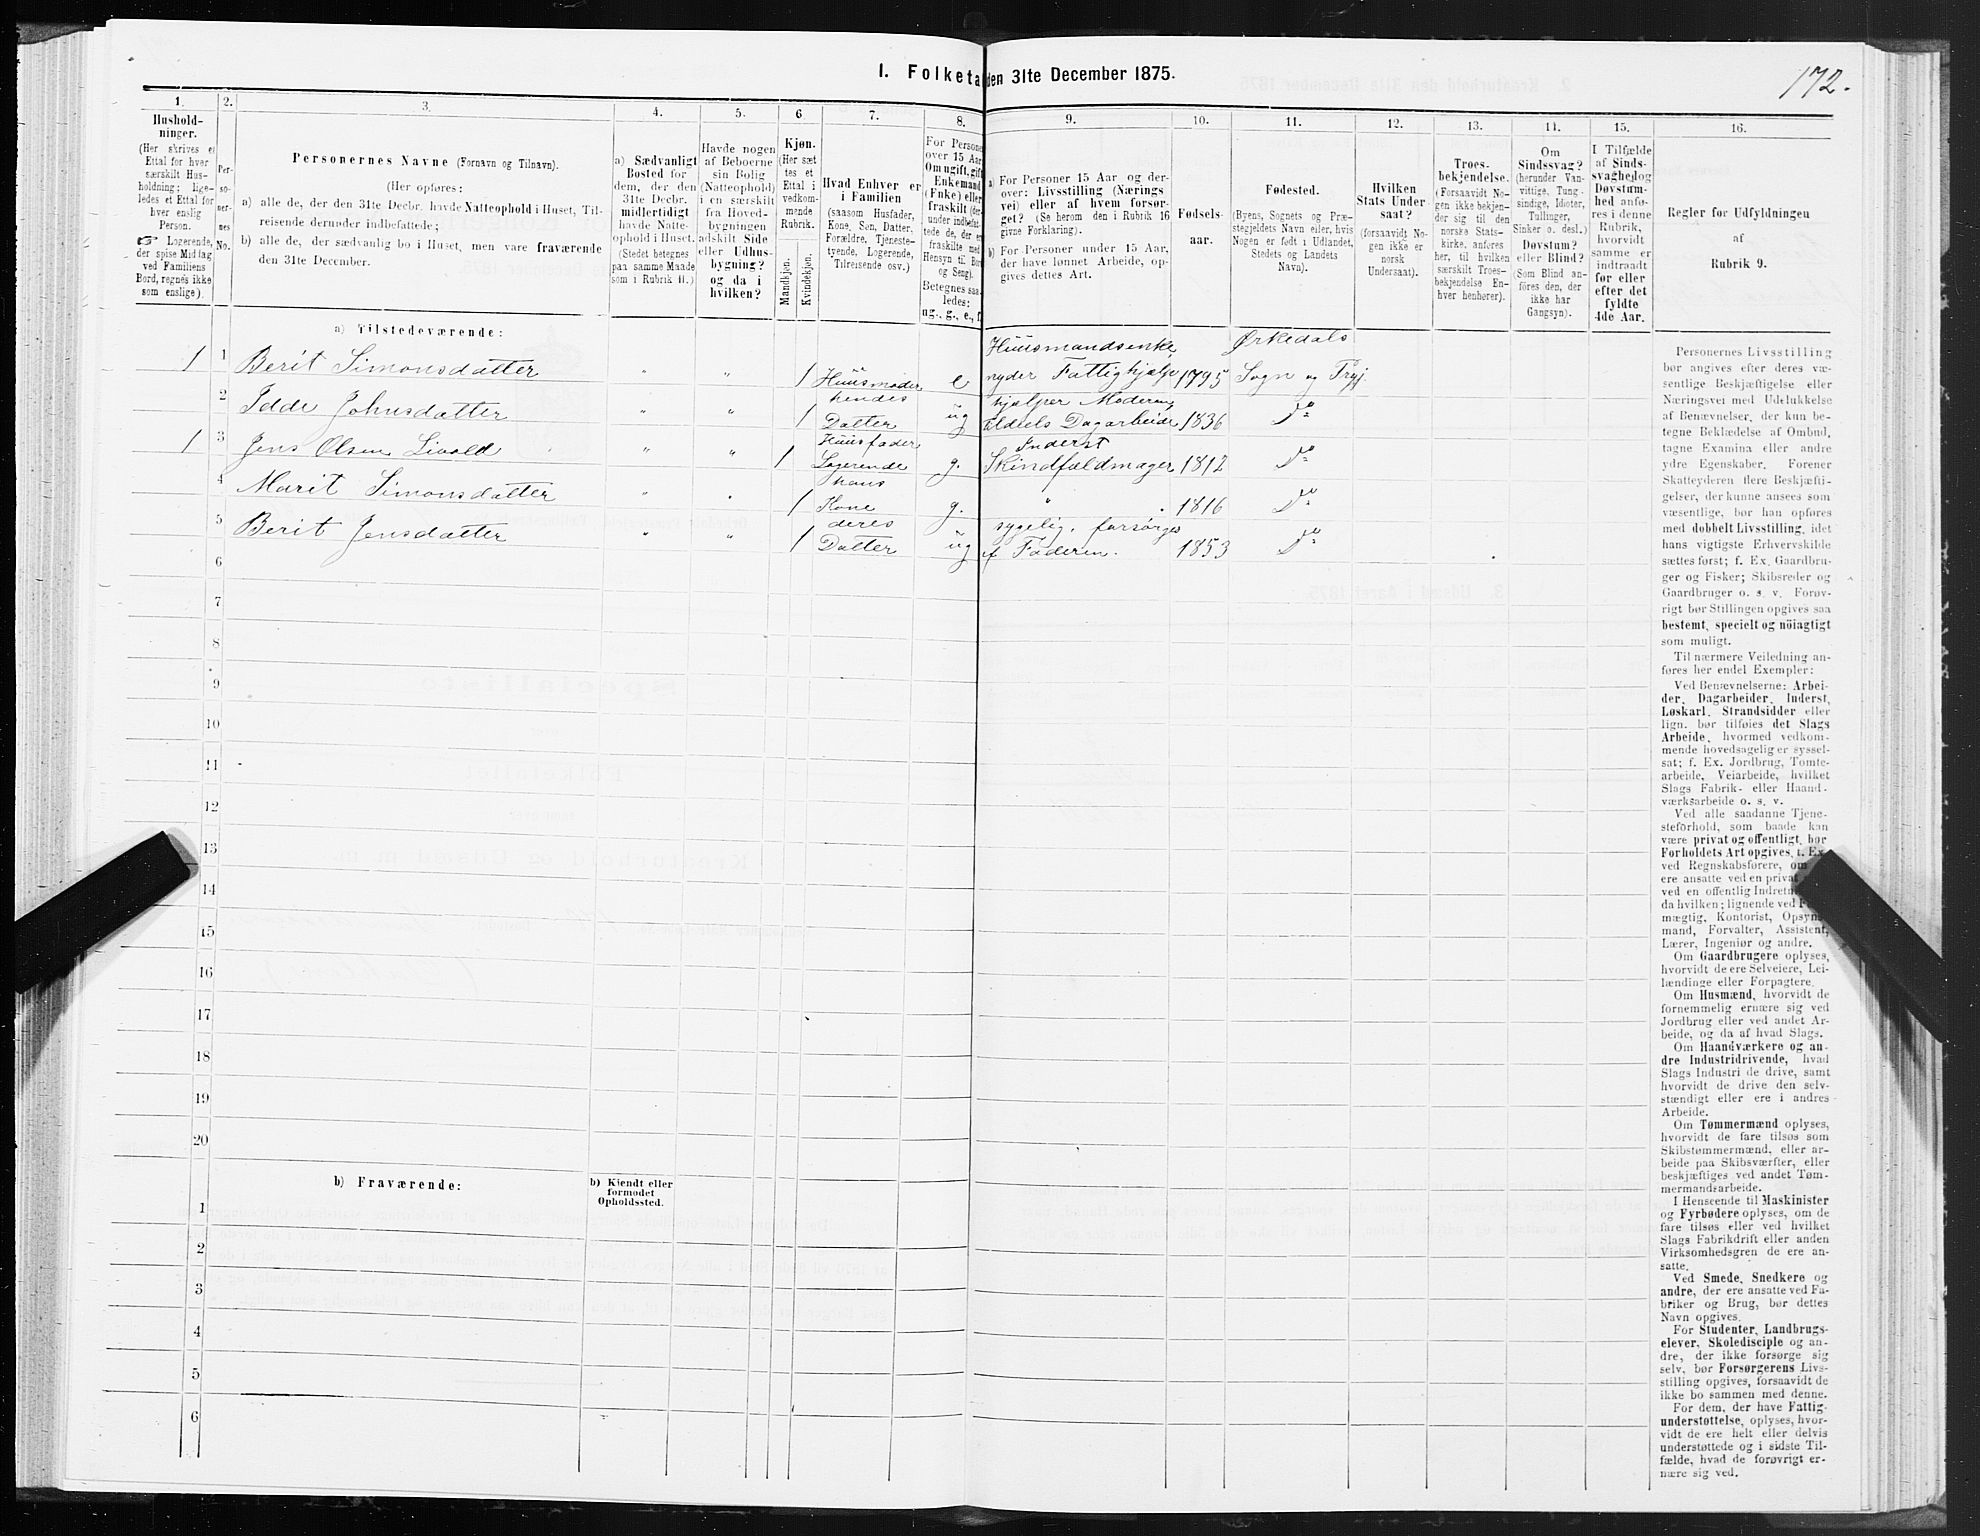 I. Folketa den 31te December 1875.
172.
1. 2. 3. 4. 5. 6 7. 8. 9. 10. 11. 12. 13. 14. 15. 16.
Hushold-
ninger.
(Her skrives et
Ettal for hver
særskilt Hus-
holdning; lige-
ledes et Ettal for
hver enslig
Person.
☞ Logerende,
der spise Middag
ved Familiens
Bord, regnes ikke
som enslige).
Per-
so-
ner-
nes
No.
Personernes Navne (Fornavn og Tilnavn).
(Her opføres:
a) alle de, der den 31te Decbr. havde Natteophold i Huset, Til-
reisende derunder indbefattede;
b) alle de, der sædvanlig bo i Huset, men vare fraværende
den 31te December.
a) Sædvanligt
Bosted for
dem, der den
31te Decbr.
midlertidigt
havde Natte-
ophold i Huset.
(Stedet betegnes
paa samme Maade
som i Rubrik 11.)
Havde nogen
af Beboerne
sin Bolig
(Natteophold)
i en særskilt
fra Hoved-
bygningen
adskilt Side
eller Udhus-
bygning?
og da i
hvilken?
Kjøn.
(Her sæt
tes et
Ettal i
vedkom-
mende
Rubrik.
Mandkjøn.
Kvindekjøn.
Hvad Enhver er
i Familien
(saasom Husfader,
Kone, Søn, Datter,
Forældre, Tjeneste-
tyende, Logerende,
Tilreisende osv.)
For Persone
over 15 Aar
Om ugift, gift
Enkemand
(Enke) eller
fraskilt (der-
under indbefat-
tede de, der er
fraskilte med
Hensyn til Bor
og Seng).
Betegnes saa-
ledes:
ug., g., e., f.
a) For Personer 15 Aar og der-
over: Livsstilling (Nærings
vei) eller af hvem forsør-
get? (Se herom den i Rubrik 16
givne Forklaring).
b) For Personer under 15 Aar,
der have lønnet Arbeide, op-
gives dettes Art.
Fødsels-
aar.
Fødested.
(Byens, Sognets og Præ-
stegjeldets Navn eller, hvis
Nogen er født i Udlandet,
Stedets og Landets
Navn).
Hvilken
Stats Under
saat?
(forsaavidt No-
gen ikke er
norsk
Undersaat).
Troes-
bekjendelse.
(Forsaavidt No-
gen ikke bekjen-
der sig til den
norske Stats-
kirke, anføres
her, til hvilken
særskilt Troes-
bekjendelse En-
hver henhører).
Om
Sindssvag?
(herunder Van-
vittige, Tung-
sindige, Idioter,
Tullinger,
Sinker o. desl.)
Døvstum?
eller Blind?
(Som Blind an-
føres den, der
ikke har
Gangsyn).
I Tilfælde
af Sinds-
svaghed og
Døvstum-
hed anfø-
res i denne
Rubrik,
hvorvidt
samme er
indtraadt
før eller
efter det
fyldte
4de Aar.
Regler før Udfyldningen
af
Rubrik 9.
a) Tilstedeværende:
Huusmandsenke Ørkedals
1 1 Berit Simonsdatter " " 1 Huusmoder e nyder Fattighjælp 1795 Sogn og Prgj.
hendes hjælper Moderen
2 Idde Johnsdatter " " 1 Datter ug eldels Dagarbeide 1836 Do
Huusfader Inderst
1 3 Jens Olsen Livold " " 1 Logerende g. Skindfældmager 1812 Do
hans
4 Marit Simonsdatter " " 1 Kone g. " 1816 Do
deres sygelig, forsørges
5 Berit Jensdatter " " 1 Datter ug af Faderen. 1853 Do
6
7
8
9
10
11
12
13
14
15
16
17
18
19
20
b) Fraværende:
b) Kjendt eller
formodet
Opholdssted.
1
2
3
4
5
6
Personernes Livsstilling
bør angives efter deres væ-
sentlige Beskjæftigelse eller
Næringsvei med Udelukkelse
af Benævnelser, der kun be-
tegne Beklædelse af Ombud,
tagne Examina eller andre
ydre Egenskaber. Forener
Skatteyderen flere Beskjæfti-
gelser, der kunne ansees som
væsentlige, bør han opføres
med dobbelt Livsstilling, idet
hans vigtigste Erhvervskilde
sættes først; f. Ex. Gaardbru-
ger og Fisker; Skibsreder og
Gaardbruger o. s. v. Forøv-
rigt bør Stillingen opgives saa
bestemt, specielt og nöiagtigt
som muligt.
Til nærmere Veiledning an-
føres her endel Exempler:
Ved Benævnelserne: Arbei-
der, Dagarbeider, Inderst,
Løskarl, Strandsidder eller
lign. bør tilføies det Slags
Arbeide, hvormed vedkom-
mende hovedsagelig er syssel-
sat; f. Ex. Jordbrug, Tomte-
arbeide, Veiarbeide, hvilket
Slags Fabrik- eller Haand-
værksarbeide o. s. v.
Ved alle saadanne Tjene-
steförhold, som baade kan
være privat og offentligt, bør
Forholdets Art opgives, t. Ex.
ved Regnskabsførere, om
ere ansatte ved en privat
ved en offentlig Indretn
da hvilken; lignende ved F
mægtig, Kontorist, Opsyns
mand, Forvalter, Assistent,
Lærer, Ingeniør og andre.
Om Gaardbrugere oplyses,
hvorvidt de ere Selveiere, Lei-
lændinge eller Forpagtere.
Om Husmænd, hvorvidt de
fornemmelig ernære sig ved
Jordbrug eller ved andet Ar-
beide, og da af hvad Slags.
Om Haandværkere og an-
dre Industridrivende, hvad
Slags Industri de drive, samt
hvorvidt de drive den selv-
stændigt eller ere i andres
Arbeide.
Om Tømmermænd oplyses,
hvorvidt de fare tilsøs som
Skibstømmermænd, eller ar-
beide paa Skibsværfter, eller
beskjæftiges ved andet Tøm-
mermandsarbeide.
I Henseende til Maskinister
og Fyrbødere oplyses, om de
fare tilsøs eller ved hvilket
Slags Fabrikdrift eller anden
Virksomhedsgren de ere an-
satte.
Ved Smede, Snedkere og
andre, der ere ansatte ved Fa-
briker og Brug, bør dettes
Navn opgives.
For Studenter, Landbrugs-
elever, Skoledisciple og an-
dre, der ikke forsørge sig
selv, bør Forsørgerens Livs-
stilling opgives, forsaavidt de
ikke bo sammen med denne.
For dem, der have Fattig-
understøttelse, oplyses, hvor-
vidt de ere helt eller delvis
understøttede og i sidste Til-
fælde, hvad de forøvrigt er-
nære sig ved.